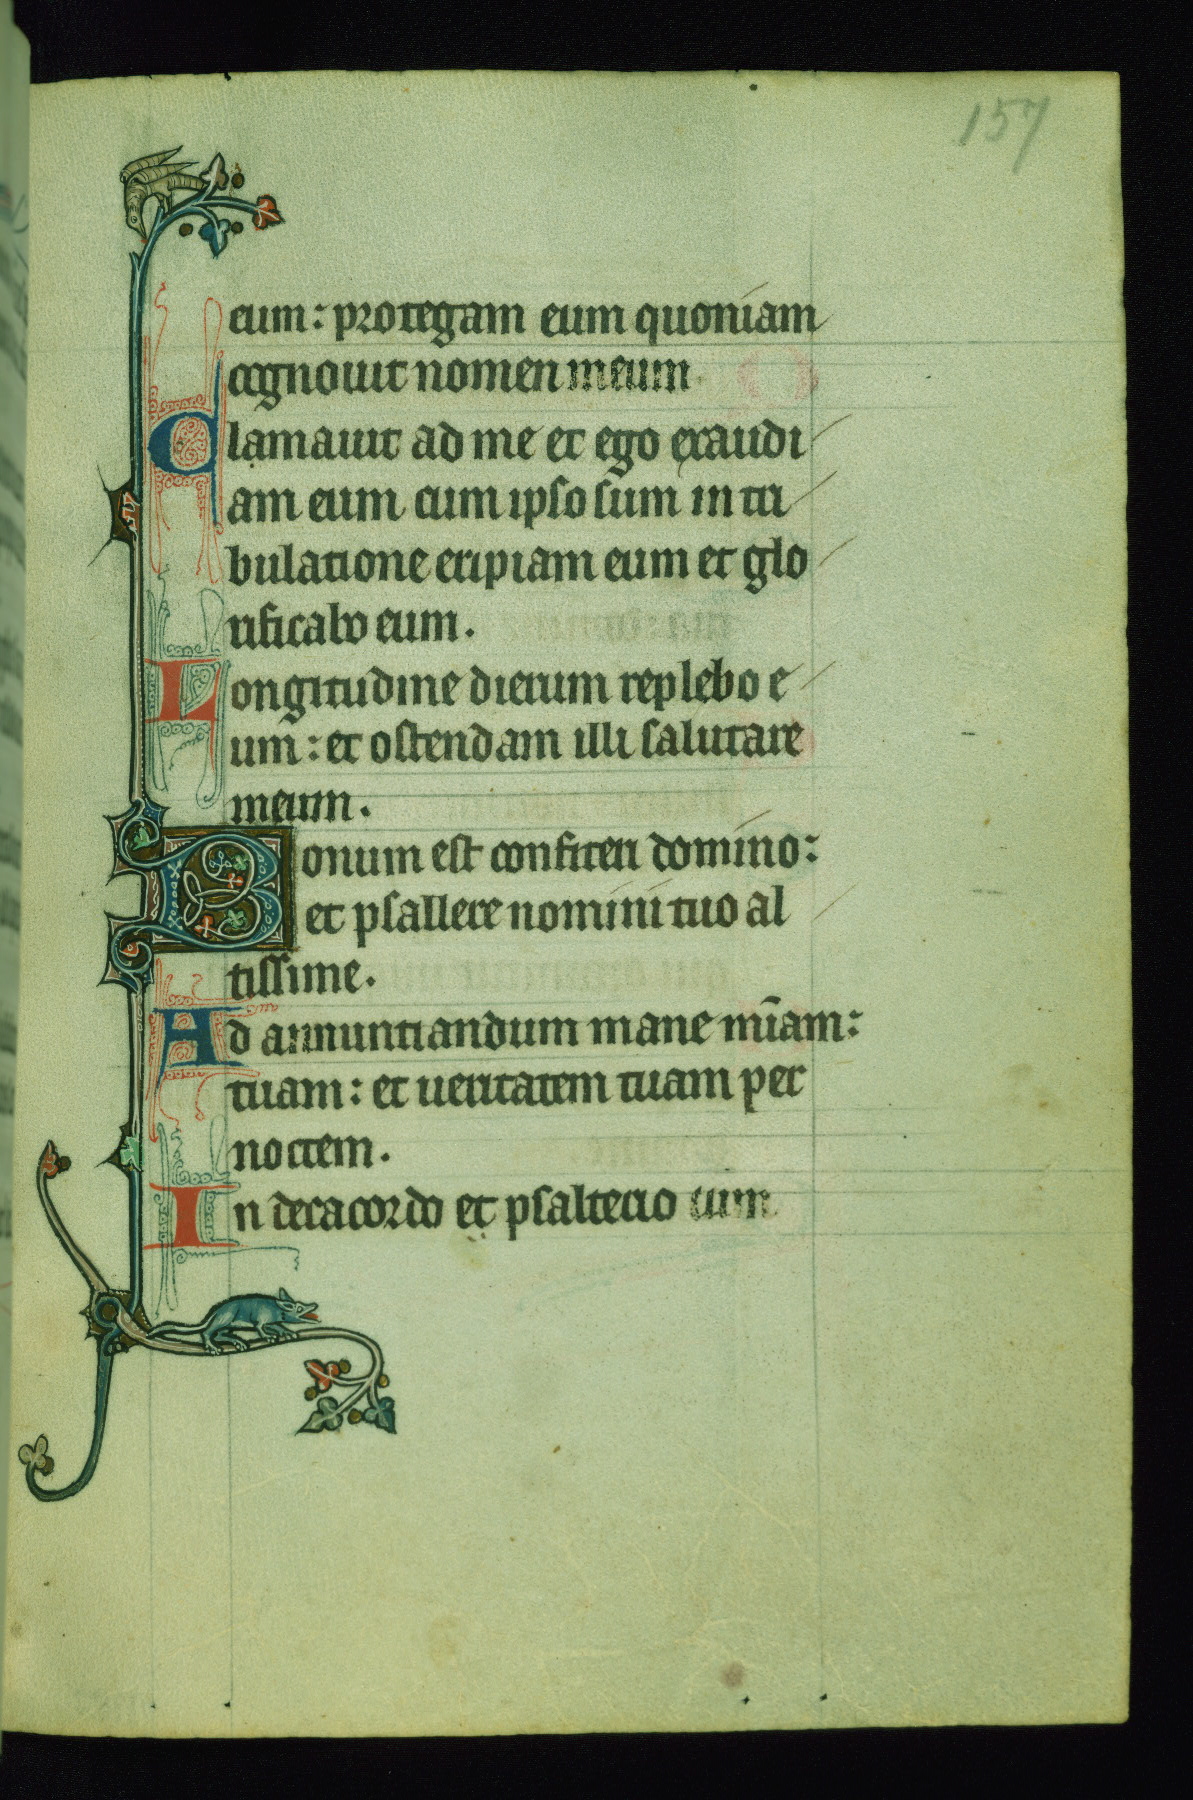 157
eum: protegam eum quoniam
cognouit nomen meum
Clamauit ad me et ego exaudi
am eum cum ipso sum in tri
bulatione eripiam eum et glo
rificabo eum.
Longitudine dierum replebo e
um: et ostendam illi salutare
meum.
Bonum est confiteri domino:
et psallere nomini tuo al
tissime.
Ad annuntiandum mane m̄iam:
tuam: et ueritatem tuam per
noctem.
In decacordo et psalterio cum